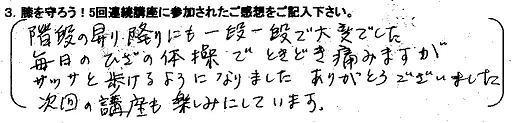 3. 膝を守ろう！5回連続講座に参加されたご感想をご記入下さい。
階段の昇り降りにも一段一段で大変でした
毎日のひざの体操でときどき痛みますが
サッサと歩けるようになりました ありがとうございました
次回の講座も楽しみにしています。